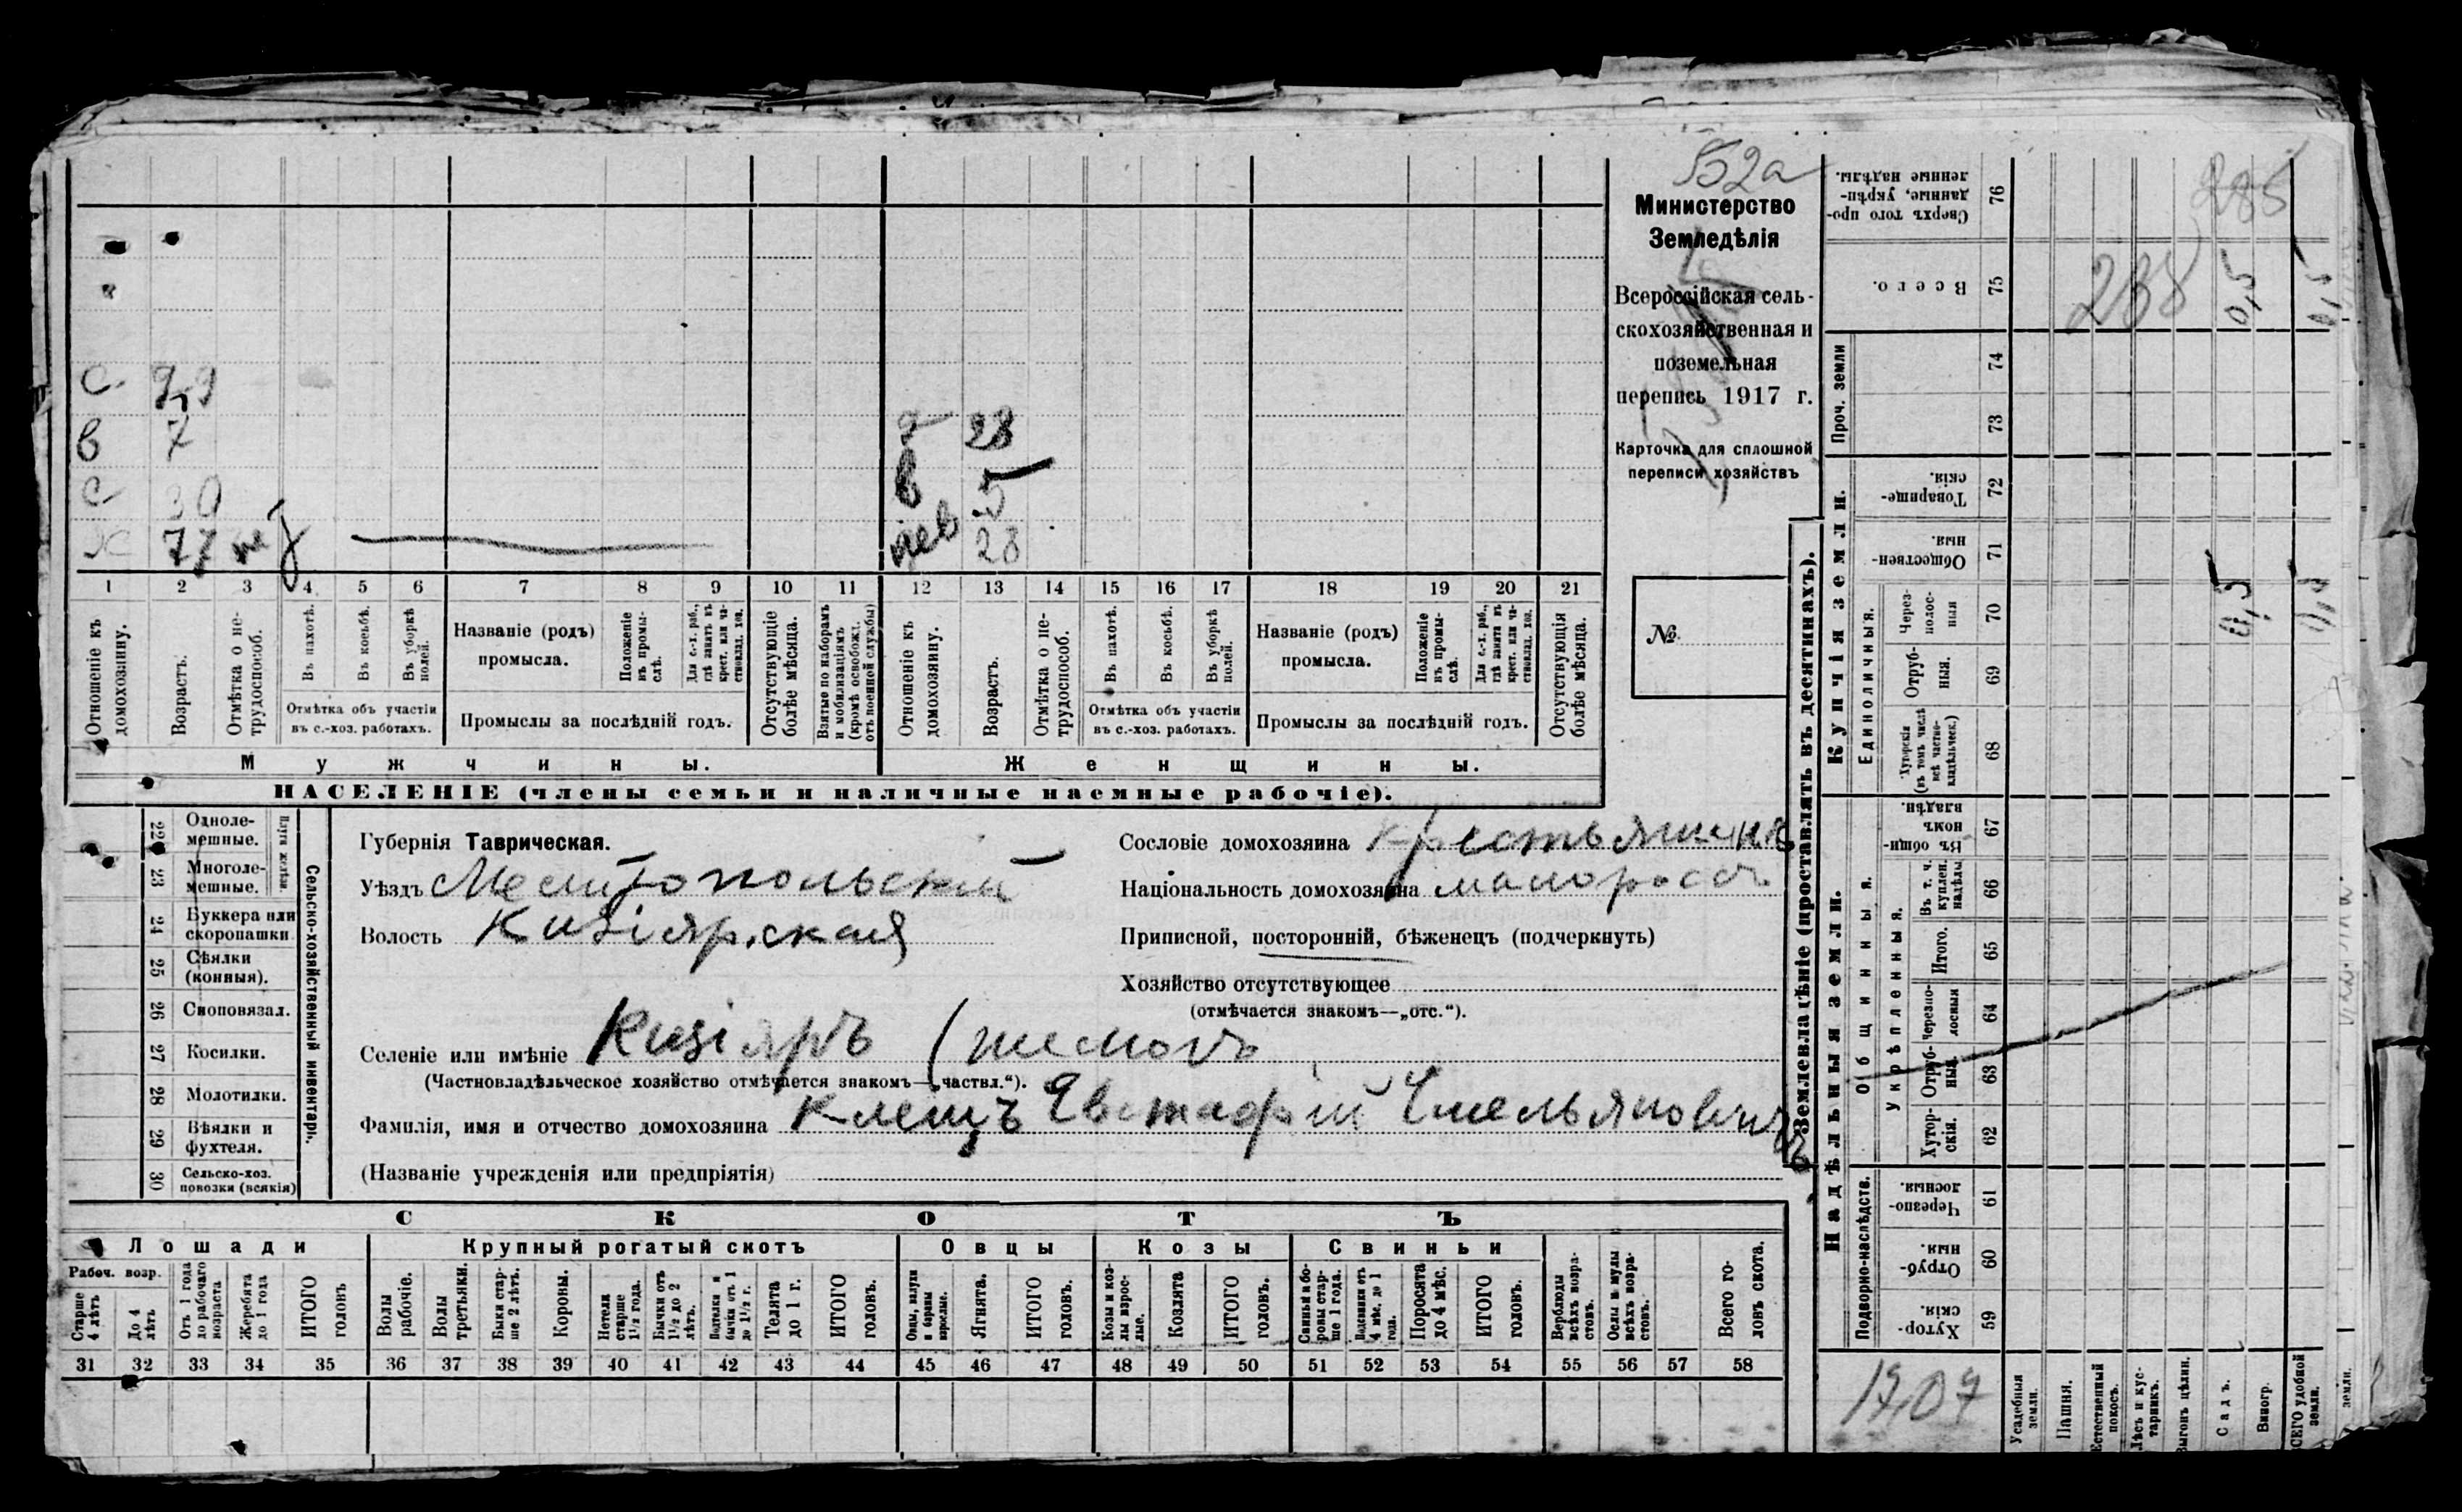 Б2а
Министерство
Земледѣлія
Всероссійская сель-
скохозяйственная и
поземельная
перепись 1917 г.
Карточка для сплошной
переписи хозяйствъ
№
с 29
в 7
с 30
х 77 не
28
в 5
нев 28
1 2 3 4 5 6 7 8 9 10 11 12 13 14 15 16 17 18 19 20 21
Отношеніе къ домохозяину.
Возрастъ.
Отмѣтка о не-трудоспособ.
Въ пахотѣ.
Въ косьбѣ.
Въ уборкѣ полей.
Отмѣтка объ участіи въ с.-хоз. работахъ.
Названіе (родъ) промысла.
Положеніе въ промы-слѣ.
Для с.-х. раб., гдѣ занятъ въ крест. или ча-стновлад. хоз.
Промыслы за послѣдній годъ.
Отсутствующіе болѣе мѣсяца.
Взятые по наборамъ и мобилизаціямъ (кромѣ освобожд. отъ военной службы)
Отношеніе къ домохозяину.
Возрастъ.
Отмѣтка о не-трудоспособ.
Въ пахотѣ.
Въ косьбѣ.
Въ уборкѣ полей.
Отмѣтка объ участіи въ с.-хоз. работахъ.
Названіе (родъ) промысла.
Положеніе въ промы-слѣ.
Для с.-х. раб., гдѣ занята въ крест. или ча-стновлад. хоз.
Промыслы за послѣдній годъ.
Отсутствующія болѣе мѣсяца.
Мужчины.
Женщины.
НАСЕЛЕНІЕ (члены семьи и наличные наемные рабочіе).
22 Одноле-мешные.
23 Многоле-мешные.
24 Буккера или скоропашки
25 Сѣялки (конныя).
26 Сноповязал.
27 Косилки.
28 Молотилки.
29 Вѣялки и фухтеля.
30 Сельско-хоз. повозки (всякія)
Сельско-хозяйственный инвентарь.
Губернія Таврическая.
Уѣздъ Мелитопольскій
Волость Кизіярская
Сословіе домохозяина крестьянинъ
Національность домохозяина малороссъ
Приписной, посторонній, бѣженецъ (подчеркнуть)
Хозяйство отсутствующее
(отмѣчается знакомъ—„отс.“).
Селеніе или имѣніе Кизіяръ
(Частновладѣльческое хозяйство отмѣчается знакомъ—„частвл.“).
Фамилія, имя и отчество домохозяина Клещъ Евстафій Емельяновичъ
(Названіе учрежденія или предпріятія)
СКОТЪ
Лошади
Крупный рогатый скотъ
Овцы
Козы
Свиньи
Рабоч. возр.
Старше 4 лѣтъ
До 4 лѣтъ
Отъ 1 года до рабочаго возраста
Жеребята до 1 года
ИТОГО головъ
Волы рабочіе.
Волы третьяки.
Быки стар-ше 2 лѣтъ.
Коровы.
Нетели старше 1½ года.
Бычки отъ 1½ до 2 лѣтъ.
Подтелки и бычки отъ 1 до 1½ г.
Телята до 1 г.
ИТОГО головъ.
Овцы, валухи и бараны взрослые.
Ягнята.
ИТОГО головъ.
Козы и коз-лы взрос-лые.
Козлята
ИТОГО головъ.
Свиньи и бо-ровы стар-ше 1 года.
Подсвинки отъ 4 мѣс. до 1 года.
Поросята до 4 мѣс.
ИТОГО головъ.
Верблюды всѣхъ возра-стовъ.
Ослы и мулы всѣхъ возра-стовъ.
Всего го-ловъ скота.
31 32 33 34 35 36 37 38 39 40 41 42 43 44 45 46 47 48 49 50 51 52 53 54 55 56 57 58
Землевладѣніе (проставлять въ десятинахъ).
Сверхъ того про-данные, укрѣп-ленные надѣлы. 76
Всего. 75
Проч. земли
74
73
Купчія земли.
Товарище-скія. 72
Обществен-ныя. 71
Единоличныя.
Через-полос-ныя 70
Отруб-ныя. 69
Хуторскія (въ томъ числѣ всѣ частно-владѣльческ.) 68
Надѣльныя земли.
Общинныя.
Въ общи-номъ владѣн. 67
Укрѣпленныя.
Въ т. ч. куплен. надѣлы 66
Итого. 65
Черезпо-лосныя 64
Отруб-ныя. 63
Хутор-скія. 62
Подворно-наслѣдств.
Черезпо-лосныя. 61
Отруб-ныя. 60
Хутор-скія. 59
288
0,5
0,5
0,5
0,5
Усадебныя земли.
Пашня.
Естественный покосъ.
Лѣсъ и кус-тарникъ.
Выгонъ цѣлин.
Садъ.
Виногр.
ВСЕГО удобной земли.
земли.